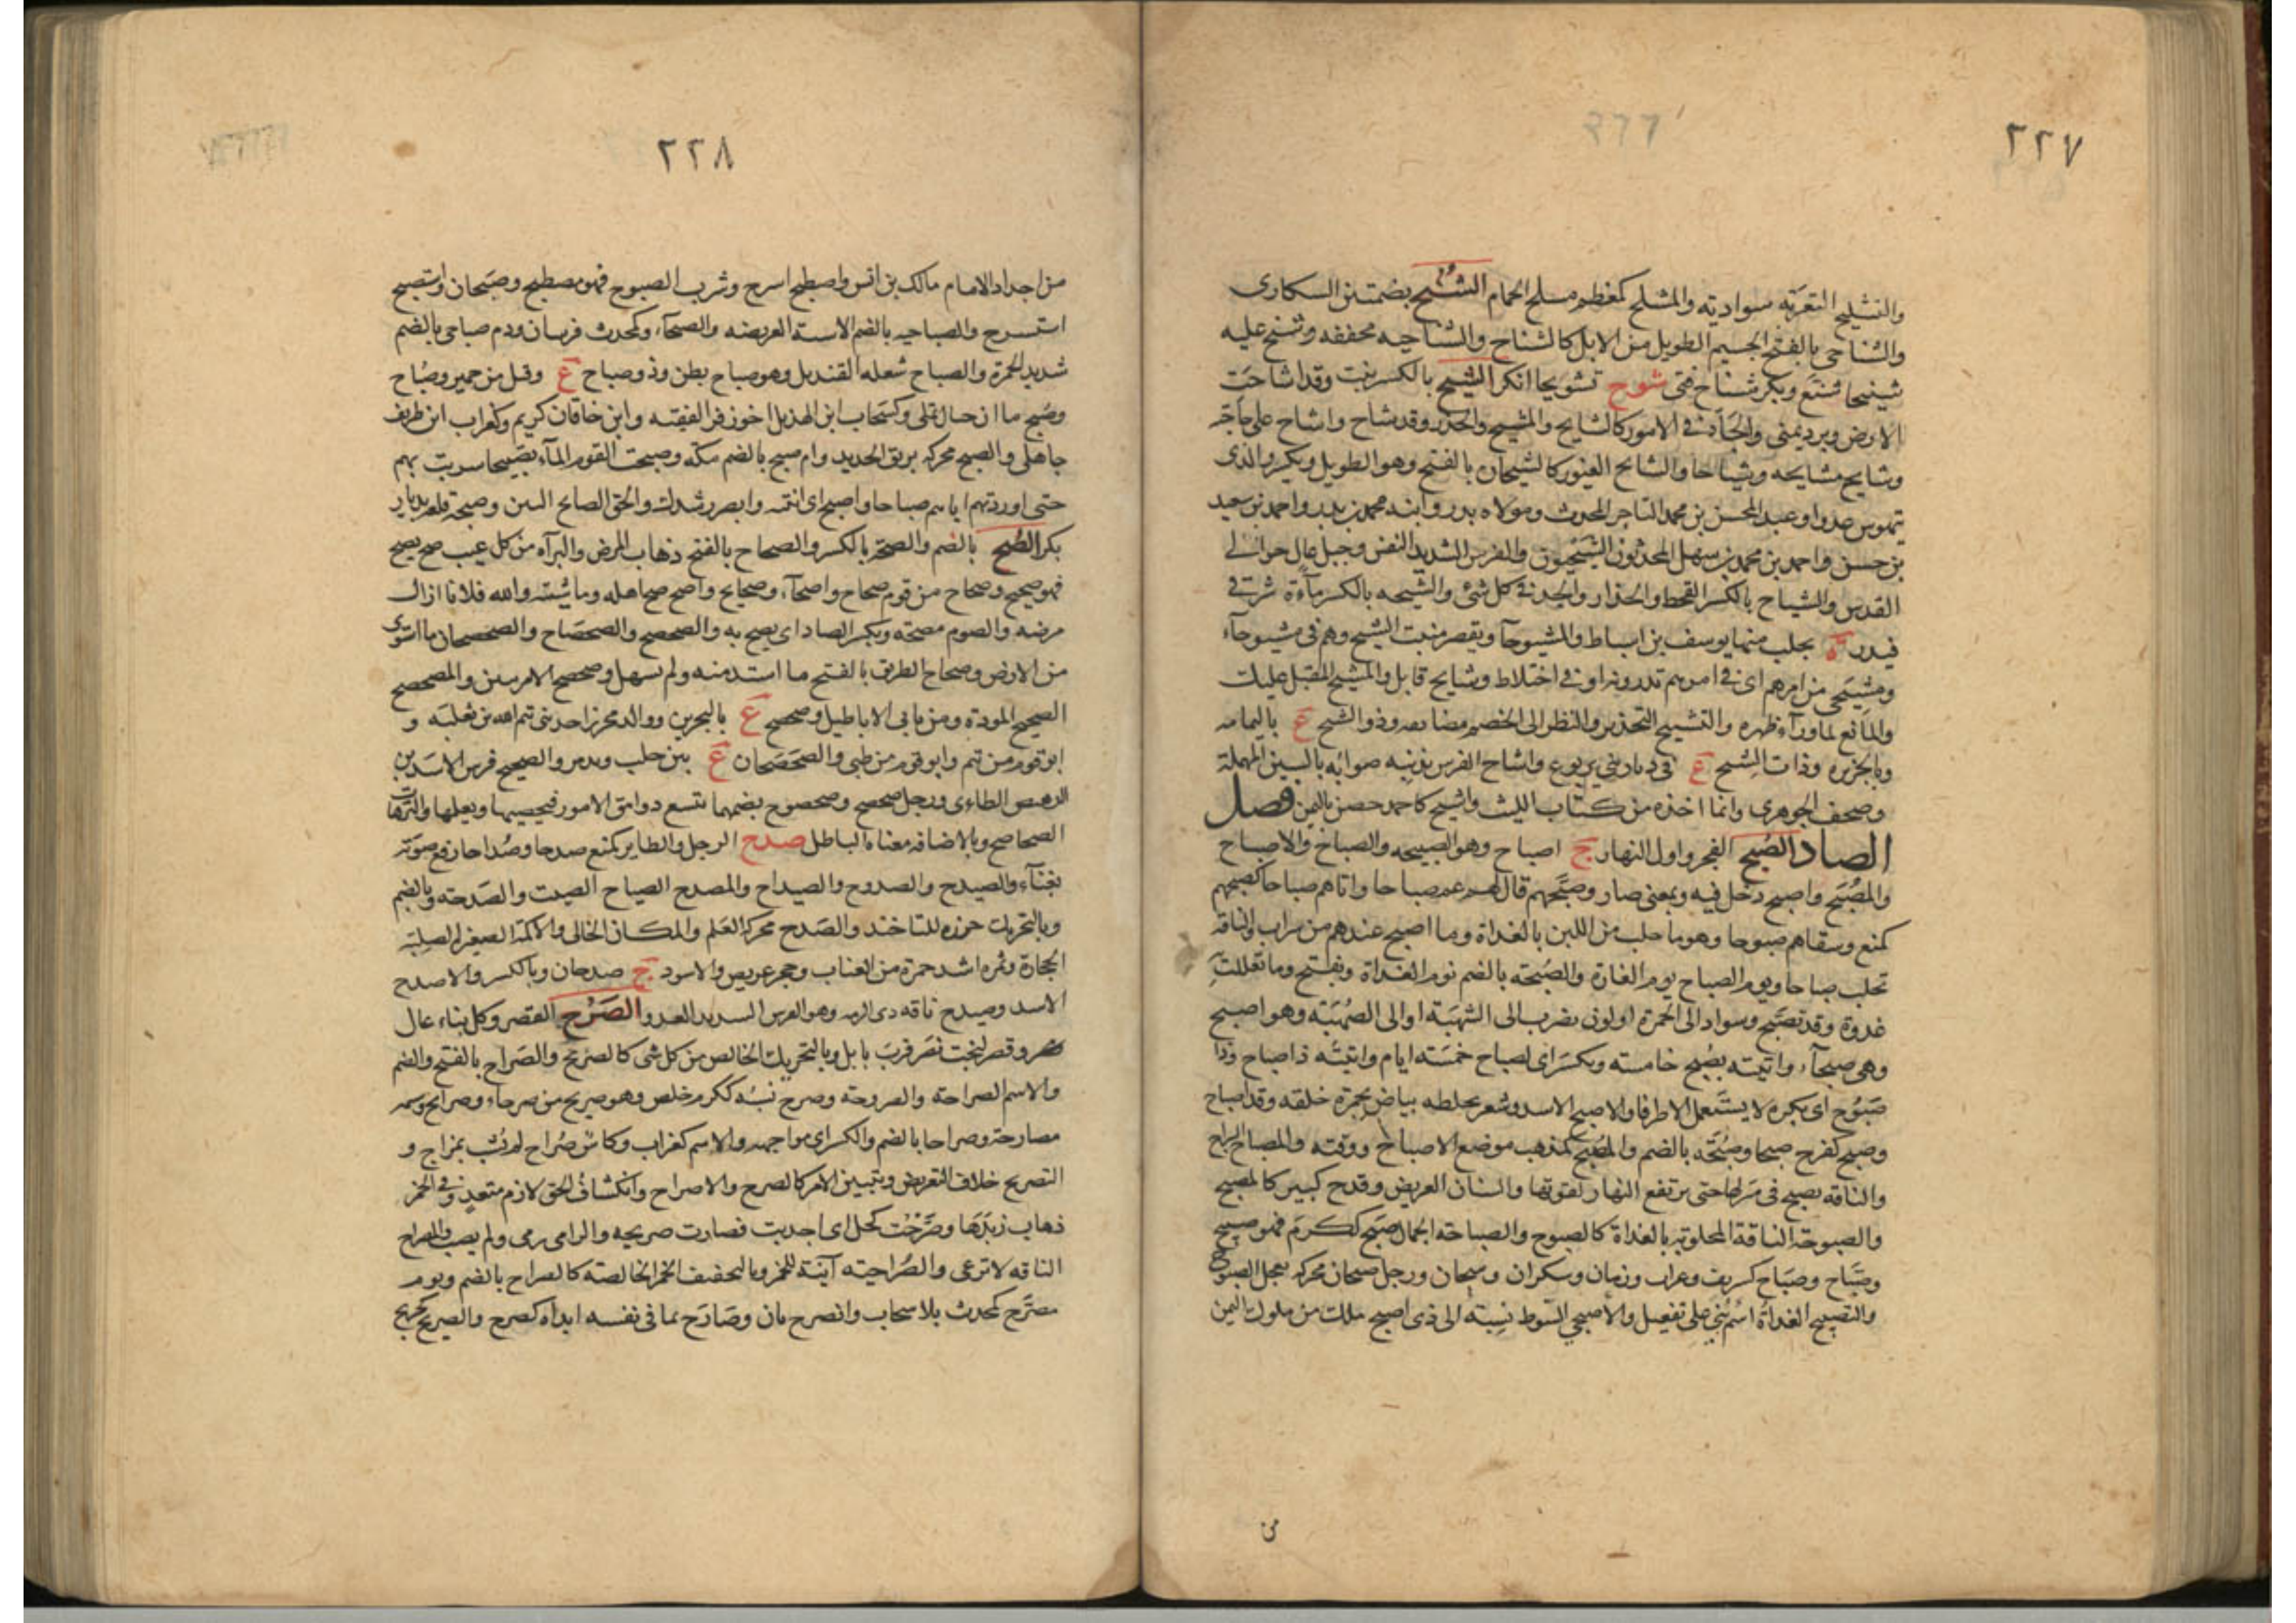 ٢٢٧
والتشليح التعرية سوادية والمشلح كمعظم مسلخ الحمام الشُنُح بضمتين السكارى
والشناحي بالفتح الجسيم الطويل من الابل كالشناح والشناحيه مخففه وشنح عليه
تشنيحا شنع وبكر شناح فتى شوح تشويحا انكر الشيح بالكسر نبت وقد اشاحت
الارض وبرد يمنى والجاد في الامور كالشايح والمشيح والحذر وقد شاح واشاح على حاجته
وشايح مشايحه وشياحا والشائح الغيور كالشيحان بالفتح وهو الطويل ويكسر والذى
يتهوس عدوا وعبد المحسن بن محمد التاجر المحدث ومولاه بدر وابنه محمد بن بدر واحمد بن سعيد
بن حسن واحمد بن محمد بن سهل المحدثون الشيحيون والفرس الشديد النفس وجبل عال حوالى
القدس والشياح بالكسر القحط والحذار والجد في كل شئ والشيحه بالكسر ماءة شرقي
فيد و ة بحلب منها يوسف بن اسباط والمشيوحآ ويقصر منبت الشيح وهم في مشيوحاء
ومشيحى من امرهم اى في امر يبتدرونه او في اختلاط وشايح قاتل والمشيح المقبل عليك
والمانع لما وراء ظهره والتشييح التحذير والنظر الى الخصم مضايقه وذو الشيح ع باليمامه
وبالجزيره وذات الشيح ع في ديار بني يربوع واشاح الفرس بذنبه صوابه بالسين المهملة
وصحف الجوهرى وانما اخذه من كتاب الليث واشيح كاحمد حصن باليمن فصل
الصاد الصُبح الفجر واول النهار ج اصباح وهو الصبيحه والصباح والاصباح
والمُصْبَح واصبح دخل فيه وبمعنى صار وصبَّحهم قال لهم عم صباحا واتاهم صباحا كصبحهم
كمنع وسقاهم صبوحا وهو ما حلب من اللبن بالغداة وما اصبح عندهم من شراب والناقه
تحلب صباحا ويوم الصباح يوم الغارة والصُبحه بالضم نوم الغداة ويفتح وما تعللت به
غدوة وقد تصبح وسواد الى الحمرة او لون يضرب الى الشهبة او الى الصهبة وهو اصبح
وهي صبحآء واتيته بصبح خامسته ويكسر اى لصباح خمسة ايام واتيته ذا صباح وذا
صَبُوح اى بكره لا يستعمل الا ظرفا والاصبح الاسد وشعر يخلطه بياض بحمرة خلقه وقد اصباح
وصبح كفرح صبحا وصُبْحَه بالضم والمُصبَح كمذهب موضع الاصباح ووقته والمصباح السراج
والناقه يصبح في مبركها حتى يرتفع النهار لقوتها والسنان العريض وقدح كبير كالمصبح
والصبوحة الناقة المحلوبة بالغداة كالصبوح والصباحة الجمال صبح ككرم فهو صبيح
وصباح وصباح كشريف وغراب ورمان وسكران وصبحان ورجل صبحان محركه يعجل الصبوح
والتصبيح الغداة اسم بني على تفعيل والاصبحي السوط نسبة الى ذى اصبح ملك من ملوك اليمن
من
٢٢٨
من اجداد الامام مالك بن انس واصطبح اسرج وشرب الصبوح فهو مصطبح وصبحان واستصبح
استسرج والصباحيه بالضم الاسنة العريضه والصبحآء وكمحدث فرسان ودم صباحى بالضم
شديد الحمرة والصباح شعله القنديل وهو صباح بطن وذو صباح ع وقيل من حمير وصُباح
وصُبح ما ان حيال نملى وكسحاب ابن الهذيل اخو زفر الفقيه وابن خاقان كريم وكغراب ابن طريف
جاهلي والصبح محركه بريق الحديد وام صبح بالضم مكه وصبحت القوم المآء تصبيحا سريت بهم
حتى اوردتهم اياه صباحا واصبح اى انتبه وابصر رشدك والحق الصابح البين وصبحة قلعه بديار
بكر الصُح بالضم والصحة بالكسر والصحاح بالفتح ذهاب المرض والبراءة من كل عيب صح يصح
فهو صحيح وصحاح من قوم صحاح واصحآء وصحايح واصح صح اهله وماشيته والله فلانا ازال
مرضه والصوم مصحه ويكسر الصاد اى يصح به والصحصح والصحصاح والصحصحان ما استوى
من الارض وصحاح الطريق بالفتح ما اشتد منه ولم يسهل وصحصح الامر تبين والمصحصح
الصحيح المودة ومن ياتى الاباطيل وصحصح ع بالبحرين ووالد محرز احد بنى تيم الله بن ثعلبه و
ابو قوم من تيم وابو قوم من طى والصحصحان ع بين حلب وتدمر والصحيح فرس لاسد بن
الرهيص الطاءى ورجل صحصح وصحصوح بضمهما يتتبع دقائق الامور فيحصيها ويعلمها والترهات
الصحاصح وبالاضافه معناه الباطل صدح الرجل والطاير كمنع صدحا وصُداحا رفع صوته
بغناء والصيدح والصدوح والصيداح والمصدح الصياح الصيت والصدحه وبالضم
وبالتحريك خرزه للتاخذ والصدح محركة العلم والمكان الخالى والاكمة الصغيرة الصلبة
الحجارة وثمره اشد حمرة من العناب وحجر عريض والاسود ج صدحان وبالكسر والاصدح
الاسد وصيدح ناقه ذى الرمه وهو الفرس الشديد العدو الصَرْح القصر وكل بناء عال
وقصر لبخت نصر قرب بابل وبالتحريك الخالص من كل شى كالصريح والصراح بالفتح والضم
والاسم الصراحة والصروحة وصرح نسبه ككرم خلص وهو صريح من صرحاء وصرايح وشتمه
مصارحة وصراحا بالضم والكسر اى مواجهه والاسم كغراب وكاس صُراح لم تُشب بمزاج و
التصريح خلاف التعريض وتبيين الامر كالصرح والاصراح وانكشاف الحق لازم متعد وفي الخمر
ذهاب زبدها وصرحت كحل اى اجدبت فصارت صريحه والرامى رمى ولم يصب والمصراح
الناقه لا ترغى والصُراحيه آنية للخمر وبالتخفيف الخمر الخالصة كالصراح بالضم ويوم
مصرح كمحدث بلا سحاب وانصرح بان وصارح بما في نفسه ابداه كصرح والصريح كجريح